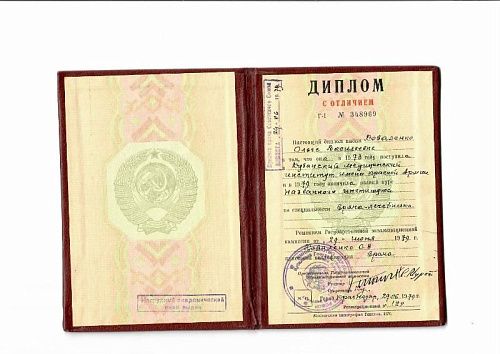 Нагрудный академический
знак выдан
ДИПЛОМ
С ОТЛИЧИЕМ
Г-I № 368969
Настоящий диплом выдан Коваленко
Ольге Яковлевне
в том, что она в 1973 году поступила
в Кубанский медицинский
институт имени Красной Армии
и в 1979 году окончила полный курс
названного института
по специальности
Решением Государственной экзаменационной
комиссии от 29 июня 1979 г.
Коваленко О.Я.
присвоена квалификация врача
Председатель Государственной
экзаменационной комиссии
Ректор
Секретарь
Город Краснодар, 29.06.1979 г.
Регистрационный №
Московская типография Гознака. 1976.